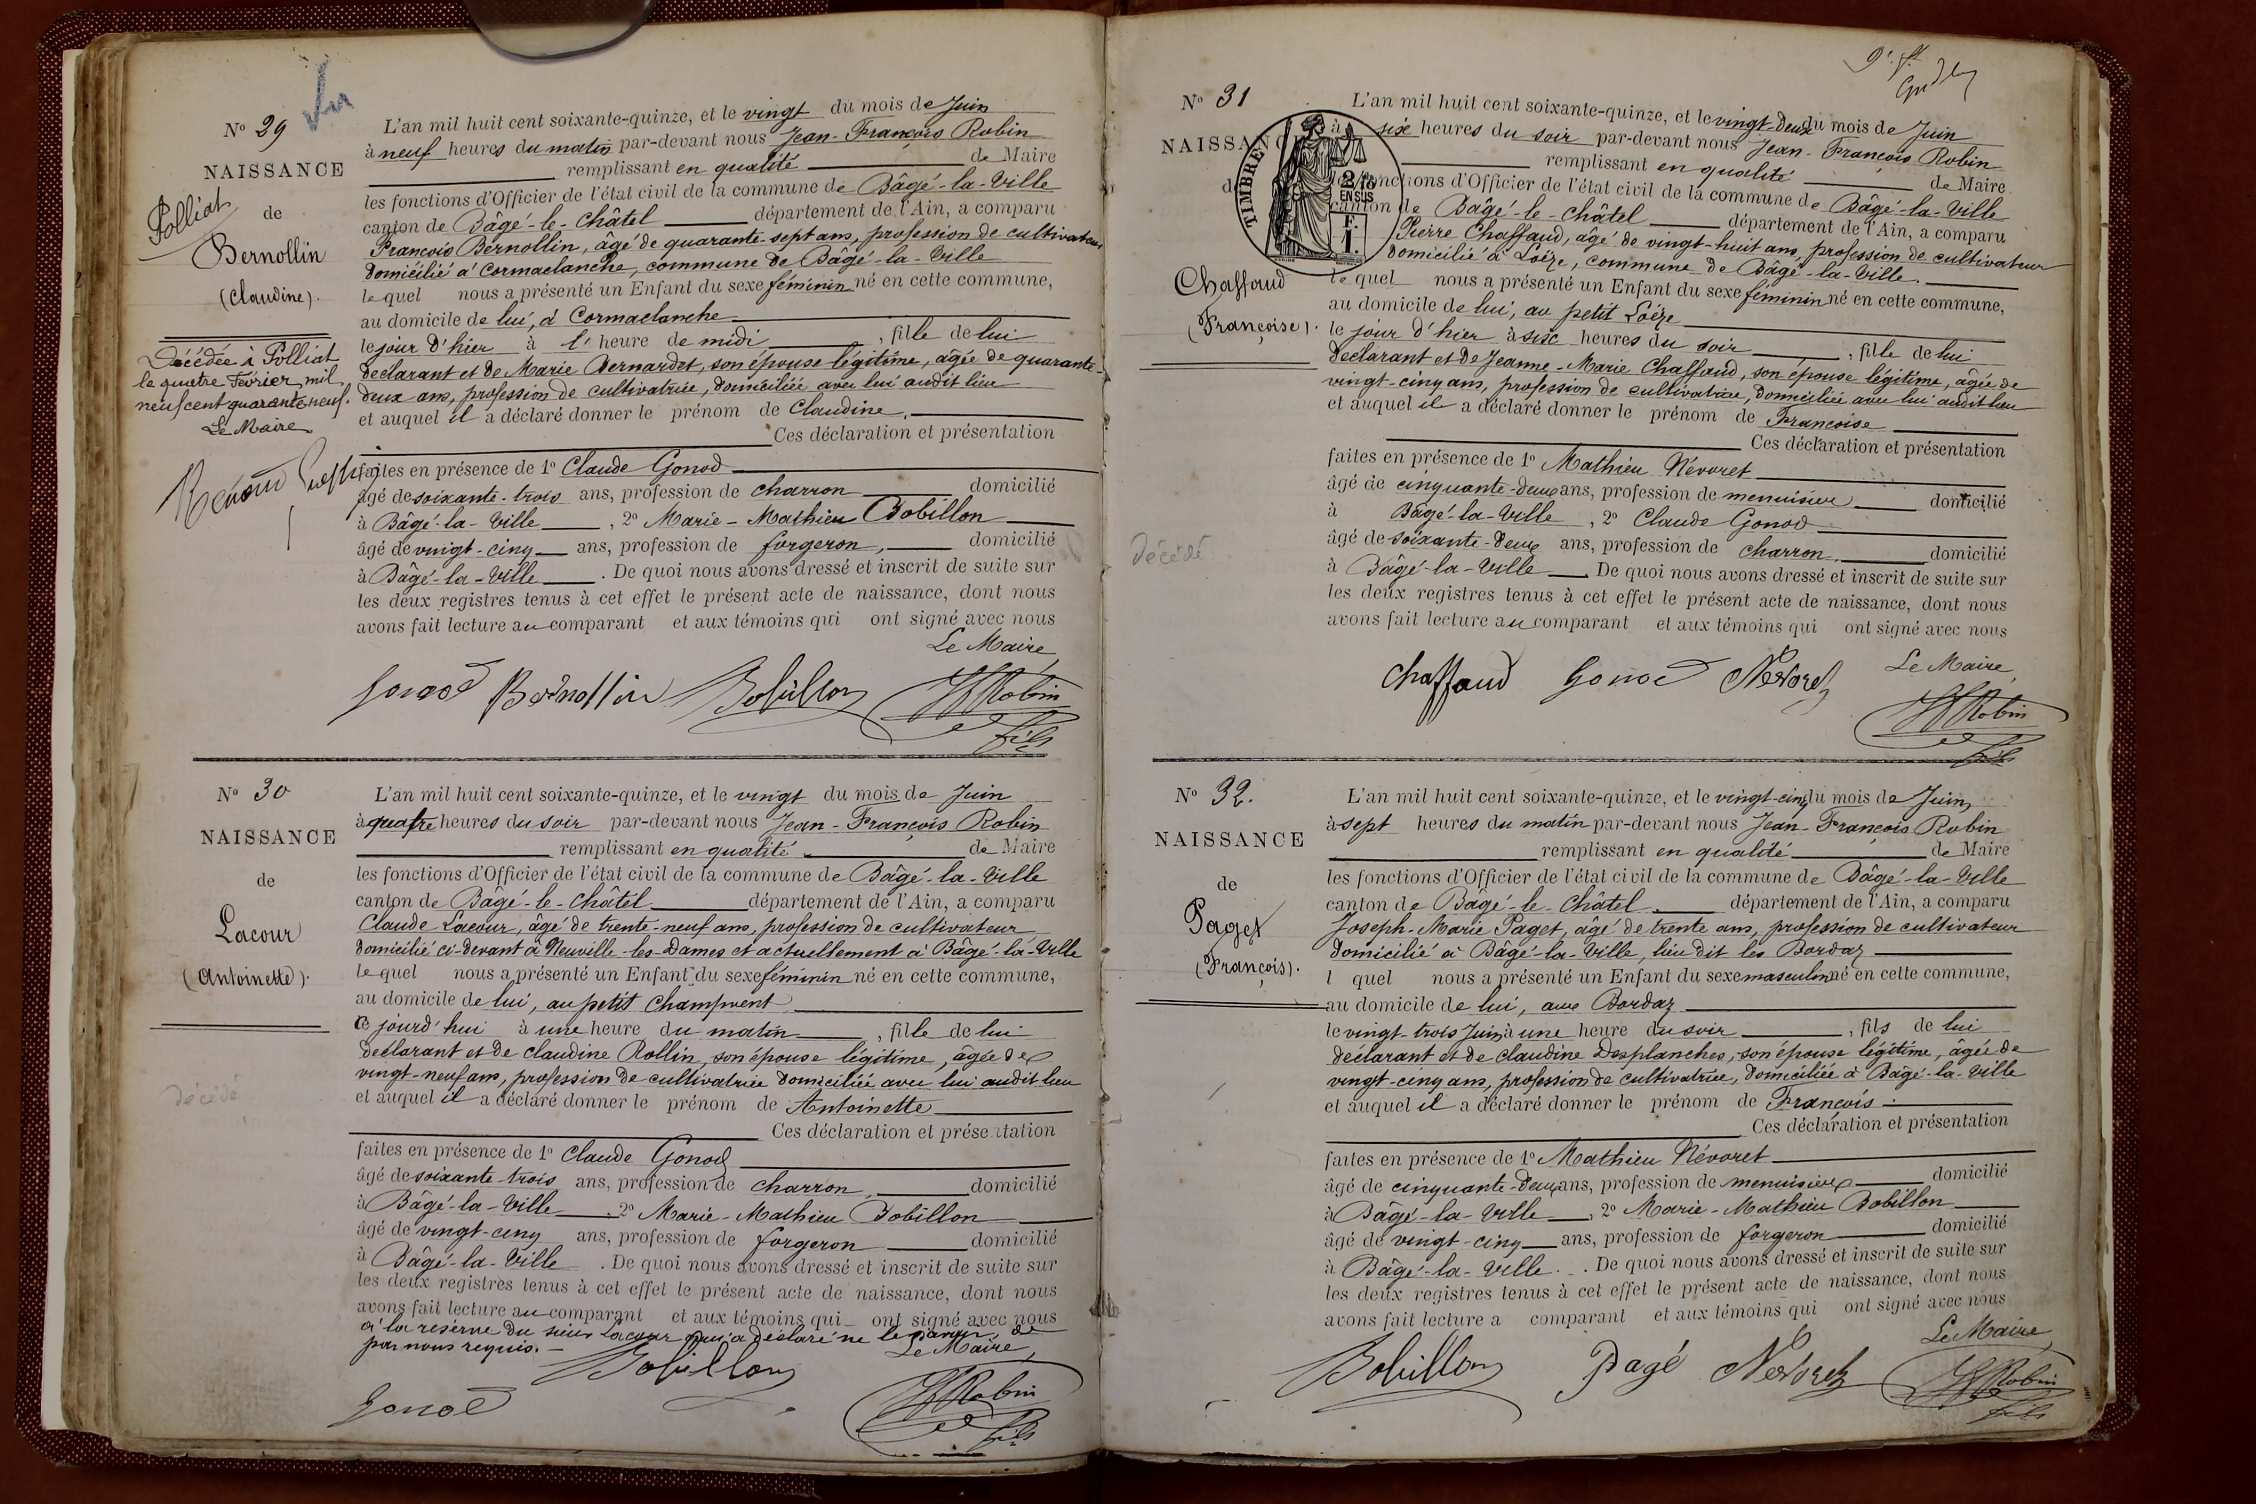 Nº 29
NAISSANCE
Polliat
de
Bernollin
(Claudine).
Décédée à Polliat
le quatre Février mil
neuf cent quarante neuf.
Le Maire
L'an mil huit cent soixante-quinze, et le vingt du mois de Juin
à neuf heures du matin par-devant nous Jean-François Robin
remplissant en qualité de Maire
les fonctions d'Officier de l'état civil de la commune de Bâgé-la-Ville
canton de Bâgé-le-Châtel département de l'Ain, a comparu
François Bernollin, âgé de quarante-sept ans, profession de cultivateur
domicilié à Cormaclanche, commune de Bâgé-la-Ville
lequel nous a présenté un Enfant du sexe féminin né en cette commune,
au domicile de lui, à Cormaclanche
le jour d'hier à l' heure de midi , fille de lui
déclarant et de Marie Bernardet, son épouse légitime, âgée de quarante-
deux ans, profession de cultivatrice, domiciliée avec lui audit lieu
et auquel il a déclaré donner le prénom de Claudine.
Ces déclaration et présentation
faites en présence de 1º Claude Gonod
âgé de soixante-trois ans, profession de charron domicilié
à Bâgé-la-Ville , 2º Marie-Mathieu Bobillon
âgé de vingt-cinq ans, profession de forgeron, domicilié
à Bâgé-la-Ville . De quoi nous avons dressé et inscrit de suite sur
les deux registres tenus à cet effet le présent acte de naissance, dont nous
avons fait lecture au comparant et aux témoins qui ont signé avec nous
Le Maire,
Gonod Bernollin Bobillon JF Robin
fils
Nº 30
NAISSANCE
de
Lacour
(Antoinette).
Décédé
L'an mil huit cent soixante-quinze, et le vingt du mois de Juin
à quatre heures du soir par-devant nous Jean-François Robin
remplissant en qualité de Maire
les fonctions d'Officier de l'état civil de la commune de Bâgé-la-Ville
canton de Bâgé-le-Châtel département de l'Ain, a comparu
Claude Lacour, âgé de trente-neuf ans, profession de cultivateur
domicilié ci-devant à Neuville-les-Dames et actuellement à Bâgé-la-Ville
lequel nous a présenté un Enfant du sexe féminin né en cette commune,
au domicile de lui, au petit Champvent
ce jourd'hui à une heure du matin , fille de lui
déclarant et de Claudine Rollin, son épouse légitime, âgée de
vingt-neuf ans, profession de cultivatrice domiciliée avec lui audit lieu
et auquel il a déclaré donner le prénom de Antoinette
Ces déclaration et présentation
faites en présence de 1º Claude Gonod
âgé de soixante-trois ans, profession de charron, domicilié
à Bâgé-la-Ville . 2º Marie-Mathieu Bobillon
âgé de vingt-cinq ans, profession de forgeron domicilié
à Bâgé-la-Ville . De quoi nous avons dressé et inscrit de suite sur
les deux registres tenus à cet effet le présent acte de naissance, dont nous
avons fait lecture au comparant et aux témoins qui ont signé avec nous
à la réserve du sieur Lacour qui a déclaré ne le savoir, de
par nous requis.
Le Maire,
Bobillon
Gonod JF Robin
fils
Nº 31
NAISSANCE
de
TIMBRE
2/10
EN SUS
F.
1.
Chaffaud
(Françoise).
décédé
L'an mil huit cent soixante-quinze, et le vingt-deux du mois de Juin
à six heures du soir par-devant nous Jean-François Robin
remplissant en qualité de Maire
les fonctions d'Officier de l'état civil de la commune de Bâgé-la-Ville
canton de Bâgé-le-Châtel département de l'Ain, a comparu
Pierre Chaffaud, âgé de vingt-huit ans, profession de cultivateur
domicilié à Loëze, commune de Bâgé-la-Ville.
lequel nous a présenté un Enfant du sexe féminin né en cette commune,
au domicile de lui, au petit Loëze
le jour d'hier à six heures du soir , fille de lui
déclarant et de Jeanne-Marie Chaffaud, son épouse légitime, âgée de
vingt-cinq ans, profession de cultivatrice, domiciliée avec lui audit lieu
et auquel il a déclaré donner le prénom de Françoise
Ces déclaration et présentation
faites en présence de 1º Mathieu Névoret
âgé de cinquante-deux ans, profession de menuisier domicilié
à Bâgé-la-Ville , 2º Claude Gonod
âgé de soixante-deux ans, profession de charron domicilié
à Bâgé-la-Ville . De quoi nous avons dressé et inscrit de suite sur
les deux registres tenus à cet effet le présent acte de naissance, dont nous
avons fait lecture au comparant et aux témoins qui ont signé avec nous
Le Maire,
Chaffaud Gonod Nevoret
JF Robin
fils
Nº 32.
NAISSANCE
de
Paget
(François).
L'an mil huit cent soixante-quinze, et le vingt-cinq du mois de Juin
à sept heures du matin par-devant nous Jean-François Robin
remplissant en qualité de Maire
les fonctions d'Officier de l'état civil de la commune de Bâgé-la-Ville
canton de Bâgé-le-Châtel département de l'Ain, a comparu
Joseph-Marie Paget, âgé de trente ans, profession de cultivateur
domicilié à Bâgé-la-Ville, lieu dit les Bordaz
l quel nous a présenté un Enfant du sexe masculin né en cette commune,
au domicile de lui, aux Bordaz
le vingt-trois Juin à une heure du soir , fils de lui
déclarant et de Claudine Desplanches, son épouse légitime, âgée de
vingt-cinq ans, profession de cultivatrice, domiciliée à Bâgé-la-Ville
et auquel il a déclaré donner le prénom de François.
Ces déclaration et présentation
faites en présence de 1º Mathieu Névoret
âgé de cinquante-deux ans, profession de menuisier domicilié
à Bâgé-la-Ville , 2º Marie-Mathieu Bobillon
âgé de vingt-cinq ans, profession de forgeron domicilié
à Bâgé-la-Ville . De quoi nous avons dressé et inscrit de suite sur
les deux registres tenus à cet effet le présent acte de naissance, dont nous
avons fait lecture a comparant et aux témoins qui ont signé avec nous
Le Maire,
Bobillon Pagé Nevoret JF Robin
fils